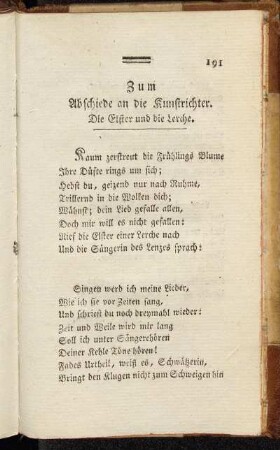 191
Zum
Abschiede an die Kunstrichter.
Die Elster und die Lerche.
Kaum zerstreut die Frühlings Blume
Ihre Düfte rings um sich;
Hebst du, geizend nur nach Ruhme,
Trillernd in die Wolken dich;
Wähnst; dein Lied gefalle allen,
Doch mir will es nicht gefallen!
Rief die Elster einer Lerche nach
Und die Sängerin des Lenzes sprach:
Singen werd ich meine Lieder,
Wie ich sie vor Zeiten sang,
Und schriest du noch dreymahl wieder:
Zeit und Weile wird mir lang
Soll ich unter Sängerchören
Deiner Kehle Töne hören!
Fades Urtheil, weiß es, Schwätzerin,
Bringt den Klugen nicht zum Schweigen hin